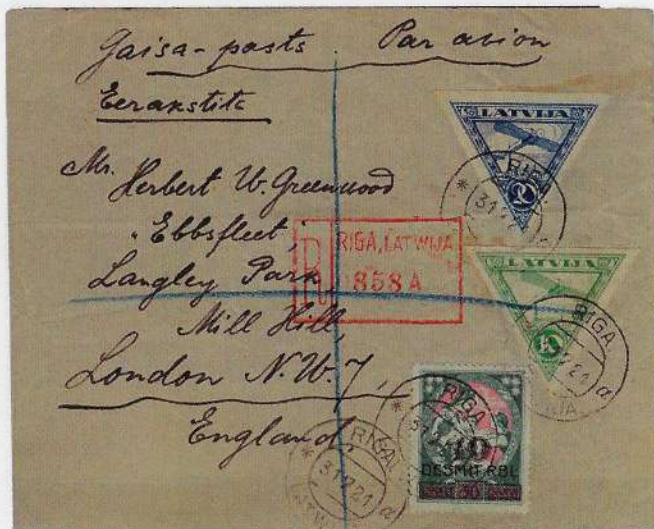 Gaisa-pasts Par avion
Eerakstits
Mr.
Herbert W. Greenwood
"Ebbsfleet",
Langley Park,
Mill Hill,
London N.W.7,
England
R
RIGA, LATWIJA
858 A
LATVIJA
RIGA
LATVIJA
RIGA
RIGA
10
DESMIT RBL
RIGA